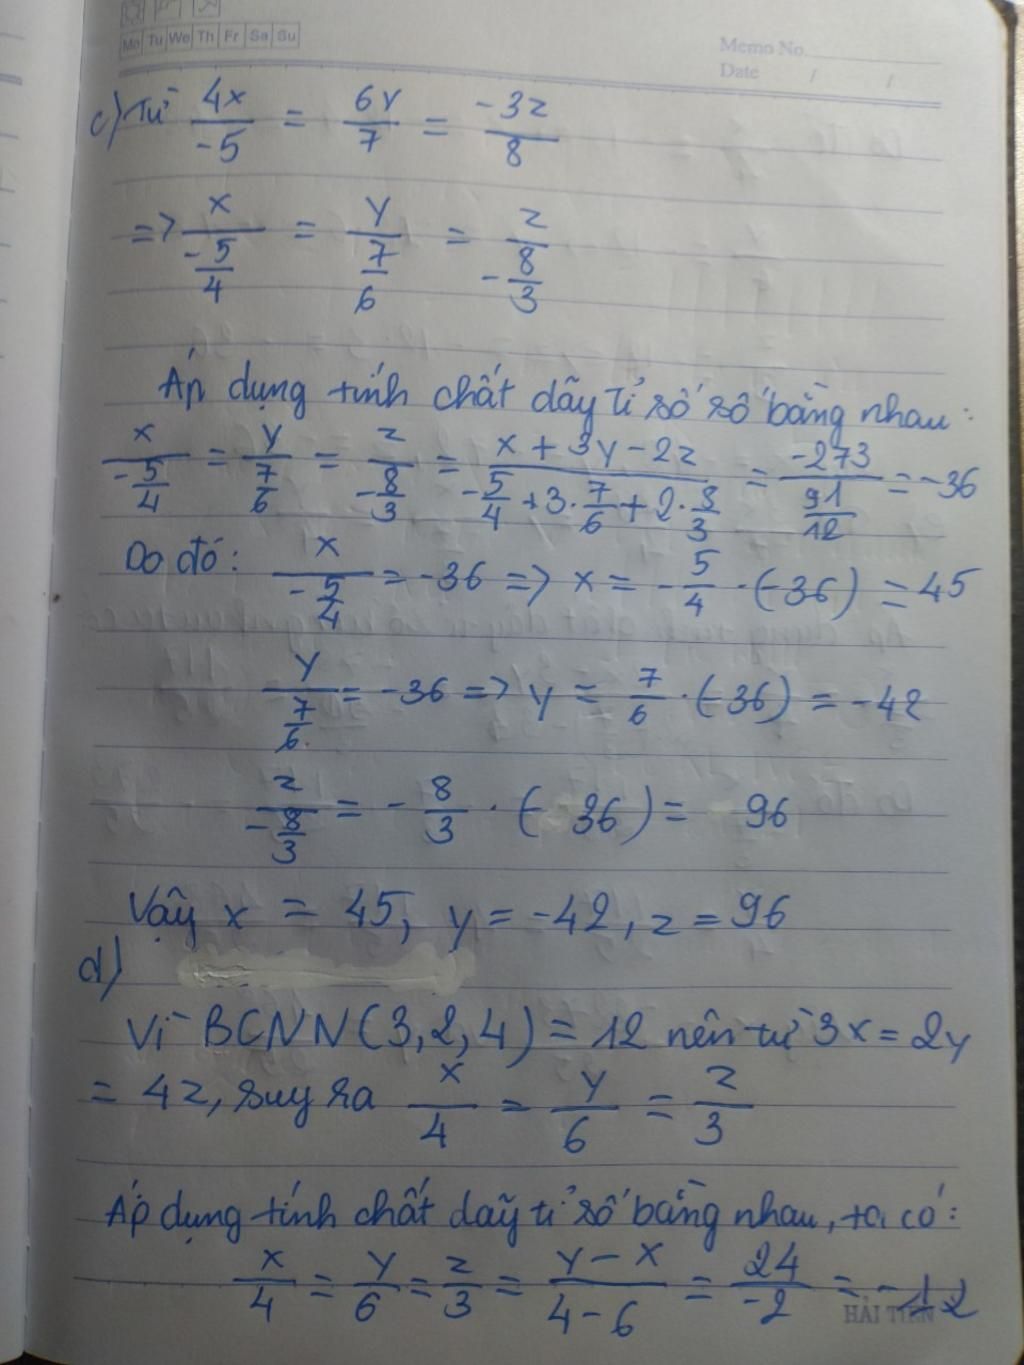 Mo Tu We Th Fr Sa Su
Memo No.
Date / /
c) Từ 4x/-5 = 6y/7 = -3z/8
=> x/(-5/4) = y/(7/6) = z/(-8/3)
Áp dụng tính chất dãy tỉ số số bằng nhau:
x/(-5/4) = y/(7/6) = z/(-8/3) = (x + 3y - 2z)/(-5/4 + 3.7/6 + 2.8/3) = -273/(91/12) = -36
Do đó: x/(-5/4) = -36 => x = -5/4 . (-36) = 45
y/(7/6) = -36 => y = 7/6 . (-36) = -42
z/(-8/3) = -8/3 . (- 36) = 96
Vậy x = 45, y = -42, z = 96
d)
Vì BCNN(3,2,4) = 12 nên từ 3x = 2y
= 4z, suy ra x/4 = y/6 = z/3
Áp dụng tính chất dãy tỉ số bằng nhau, ta có:
x/4 = y/6 = z/3 = (y - x)/(4 - 6) = 24/-2 = -12
HẢI TIẾN